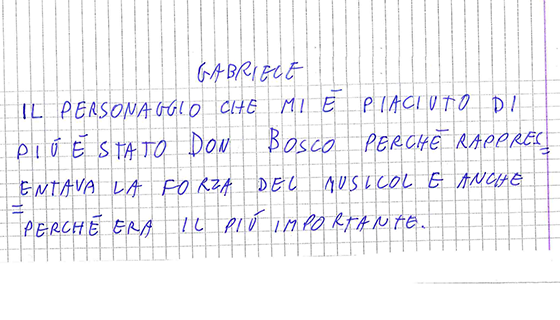 GABRIELE
IL PERSONAGGIO CHE MI È PIACIUTO DI
PIÚ È STATO DON BOSCO PERCHÈ RAPPRES=
=ENTAVA LA FORZA DEL MUSICOL E ANCHE
PERCHÈ ERA IL PIÚ IMPORTANTE.